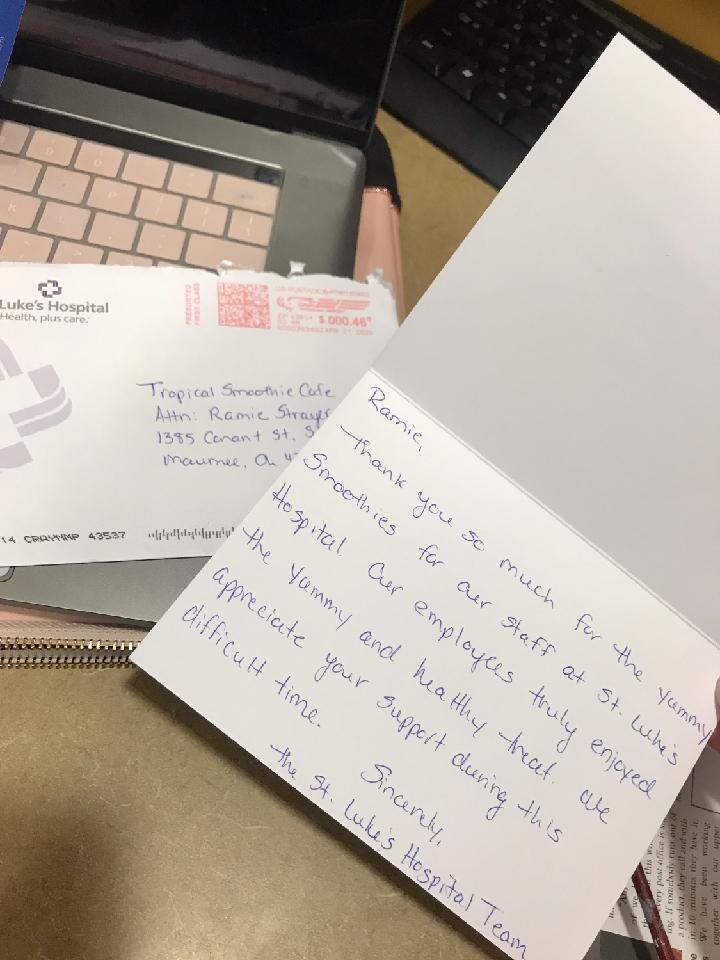 Luke's Hospital
Health, plus care.
PRESORTED
FIRST CLASS
$ 000.46
Tropical Smoothie Cafe
Attn: Ramie
1385 Conant St.
Maumee,
14 CRAYNMP 43537
Ramie,
Thank you so much for the yummy
Smoothies for our staff at St. Luke's
Hospital. Our employees truly enjoyed
the yummy and healthy treat. We
appreciate your support during this
difficult time.
Sincerely,
The St. Luke's Hospital Team